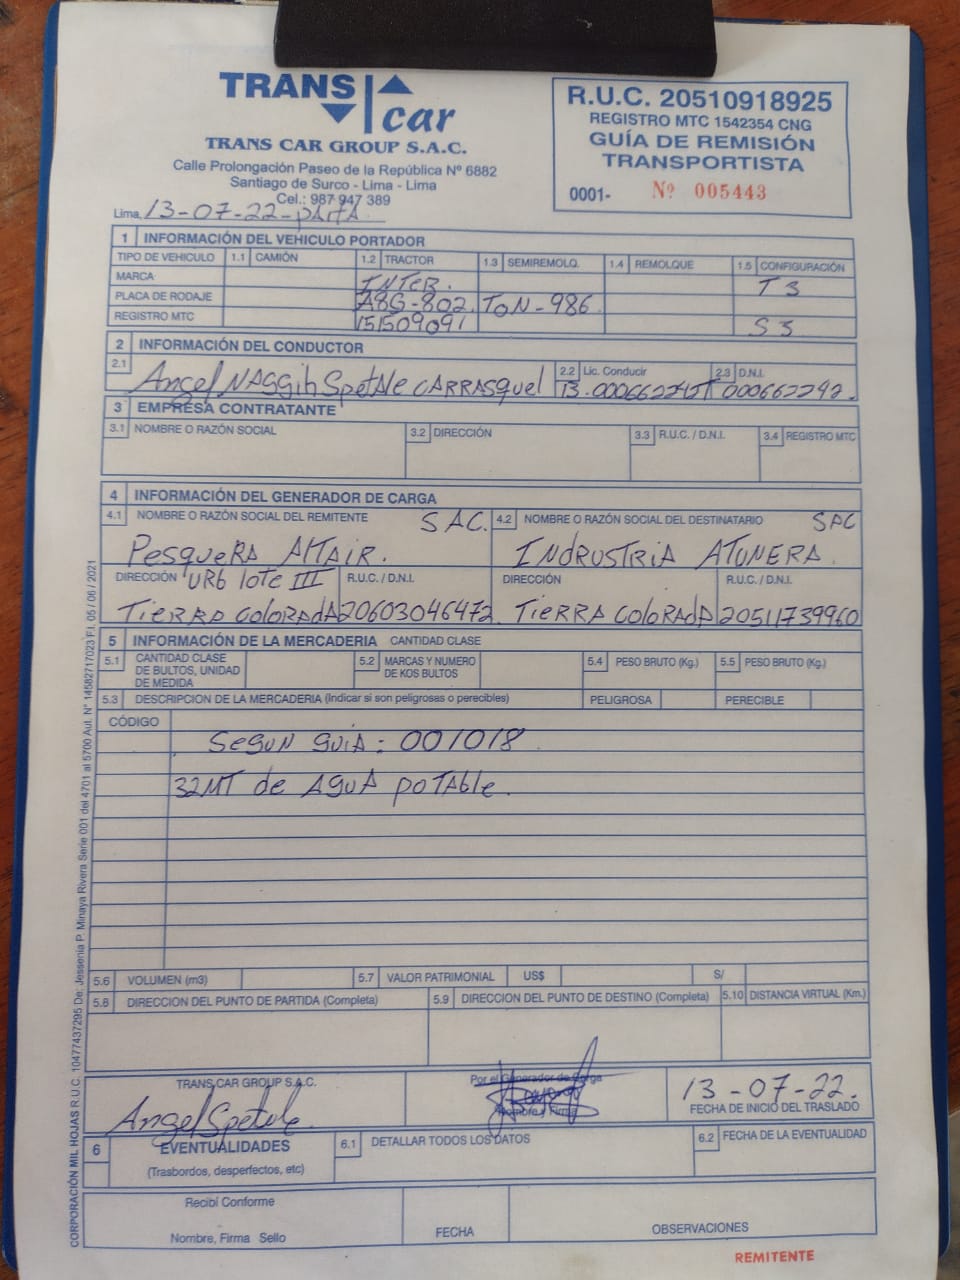 TRANS car
TRANS CAR GROUP S.A.C.
Calle Prolongación Paseo de la República Nº 6882
Santiago de Surco - Lima - Lima
Cel.: 987 947 389
Lima, 13-07-22-pAitA
R.U.C. 20510918925
REGISTRO MTC 1542354 CNG
GUÍA DE REMISIÓN
TRANSPORTISTA
0001- Nº 005443
1 INFORMACIÓN DEL VEHICULO PORTADOR
TIPO DE VEHICULO 1.1 CAMIÓN 1.2 TRACTOR 1.3 SEMIREMOLQ. 1.4 REMOLQUE 1.5 CONFIGURACIÓN
MARCA INTER. T3
PLACA DE RODAJE A8G-802. TON-986
REGISTRO MTC 151509091 S3
2 INFORMACIÓN DEL CONDUCTOR
2.1 Angel NAggih SpetAle CARRASquel 2.2 Lic. Conducir 2.3 D.N.I. 000662242.
3 EMPRESA CONTRATANTE
3.1 NOMBRE O RAZÓN SOCIAL 3.2 DIRECCIÓN 3.3 R.U.C. / D.N.I. 3.4 REGISTRO MTC
4 INFORMACIÓN DEL GENERADOR DE CARGA
4.1 NOMBRE O RAZÓN SOCIAL DEL REMITENTE SAC. 4.2 NOMBRE O RAZÓN SOCIAL DEL DESTINATARIO SAC
PesqueRA AltAiR. INDRUSTRIA ATUNERA.
DIRECCIÓN URb lote III R.U.C. / D.N.I. DIRECCIÓN R.U.C. / D.N.I.
TieRRA ColoRAdA 20603046472 TieRRA ColoRAdA 20511739960
5 INFORMACIÓN DE LA MERCADERIA CANTIDAD CLASE
5.1 CANTIDAD CLASE DE BULTOS, UNIDAD DE MEDIDA 5.2 MARCAS Y NUMERO DE KOS BULTOS 5.4 PESO BRUTO (Kg.) 5.5 PESO BRUTO (Kg.)
5.3 DESCRIPCION DE LA MERCADERIA (Indicar si son peligrosas o perecibles) PELIGROSA PERECIBLE
CÓDIGO
SEGUN GUIA: 001018
32MT de AGUA poTAble.
5.6 VOLUMEN (m3) 5.7 VALOR PATRIMONIAL US$ S/
5.8 DIRECCION DEL PUNTO DE PARTIDA (Completa) 5.9 DIRECCION DEL PUNTO DE DESTINO (Completa) 5.10 DISTANCIA VIRTUAL (Km.)
TRANS CAR GROUP S.A.C. Por el Generador de Carga 13-07-22.
Angel Spetale Nombre y Firma FECHA DE INICIO DEL TRASLADO
6 EVENTUALIDADES 6.1 DETALLAR TODOS LOS DATOS 6.2 FECHA DE LA EVENTUALIDAD
(Trasbordos, desperfectos, etc)
Recibí Conforme
Nombre, Firma Sello FECHA OBSERVACIONES
REMITENTE
CORPORACIÓN MIL HOJAS R.U.C. 10477437295 De: Jessenia P. Minaya Rivera Serie 001 del 4701 al 5700 Aut. Nº 14582717023 F.I. 05 / 06 / 2021